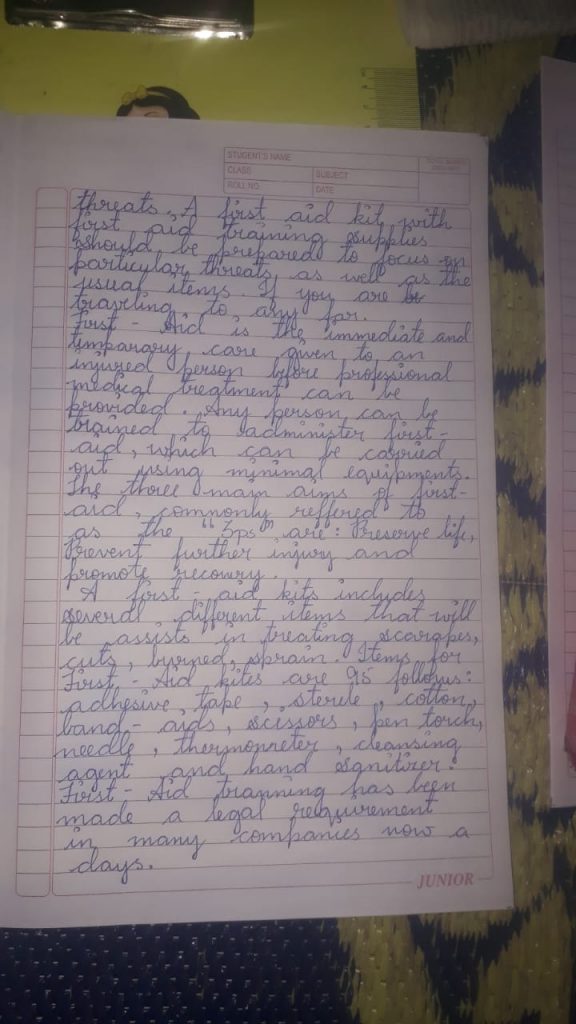 STUDENT'S NAME
CLASS
SUBJECT
ROLL NO.
DATE
threats. A first aid kit with
first aid training supplies
should be prepared to focus on
particular threats, as well as the
usual items. If you are
traveling to any far.
First - Aid is the immediate and
temparary care given to an
injured person before professional
medical treatment can be
provided. Any person can be
trained to administer first-
aid, which can be carried
out using minimal equipments.
The three main aims of first-
aid, commonly reffered to
as the "3ps" are: Preserve life,
Prevent further injury and
promote recovry.
A first - aid kits includes
several different items that will
be assists in treating scarapes,
cuts, burned, sprain. Items for
First - Aid kites are as follows:
adhesive, tape, sterile, cotton,
band - aids, scissors, pen torch,
needle, thermometer, cleansing
agent and hand sgnitizer.
First - Aid tranning has been
made a legal requirment
in many companies now a
days.
JUNIOR